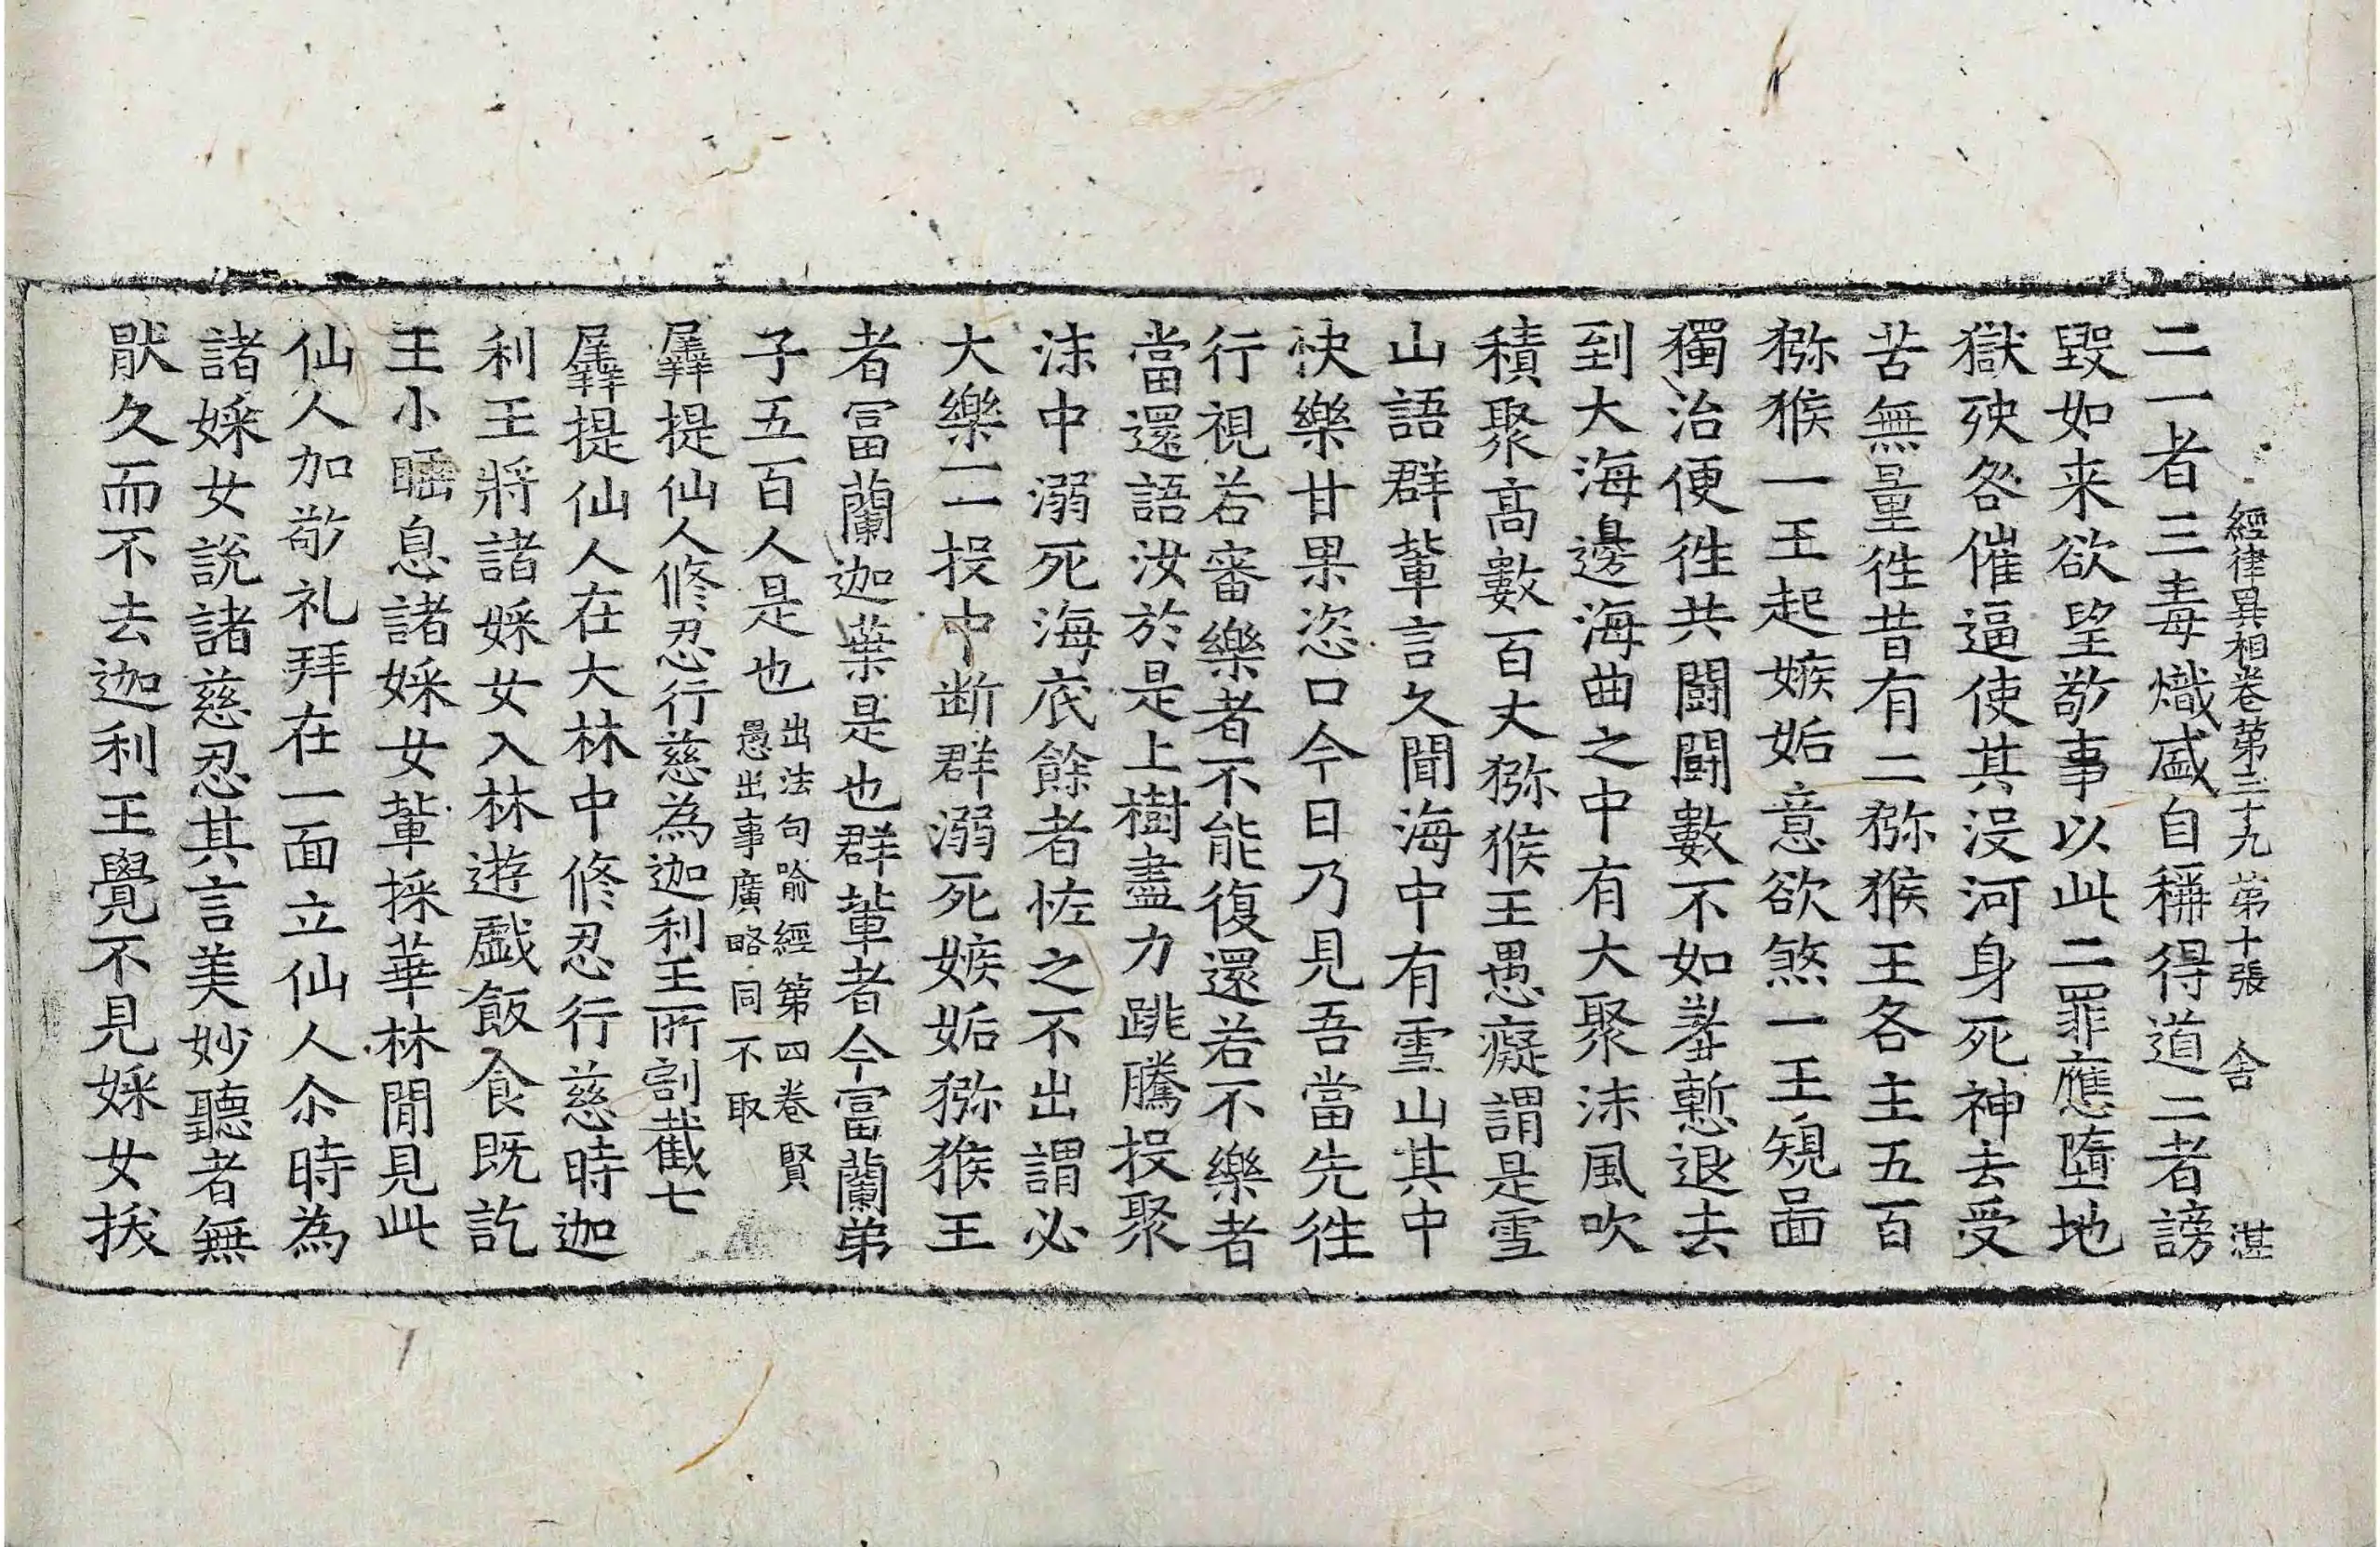 經律異相卷第三十九 第十張 舍 湛
二一者三毒熾盛自稱得道二者謗
毀如来欲望敬事以此二罪應墮地
獄殃咎催逼使其没河身死神去受
苦無量徃昔有二猕猴王各主五百
猕猴一王起嫉妬意欲煞一王䂓啚
獨治便徃共鬪鬪數不如羞慙退去
到大海邊海曲之中有大聚沫風吹
積聚髙數百丈猕猴王愚癡謂是雪
山語群軰言久聞海中有雪山其中
快樂甘果恣口今日乃見吾當先徃
行視若審樂者不能復還若不樂者
當還語汝於是上樹盡力跳騰投聚
沫中溺死海底餘者恠之不出謂必
大樂一一投中断群溺死嫉妬猕猴王
者冨蘭迦葉是也群軰者今富蘭弟
子五百人是也出法句喻經第四卷賢
愚出事廣略同不取
羼提仙人修忍行慈為迦利王所割截七
羼提仙人在大林中修忍行慈時迦
利王將諸婇女入林遊戲飯食既訖
王小睡息諸婇女軰採華林閒見此
仙人加敬礼拜在一面立仙人尒時為
諸婇女說諸慈忍其言美妙聽者無
猒久而不去迦利王覺不見婇女拔